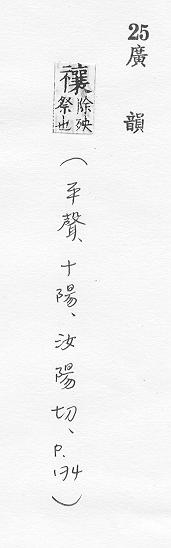 25
廣韻
禳除殃祭也
(平聲、十陽、汝陽切、P.174)